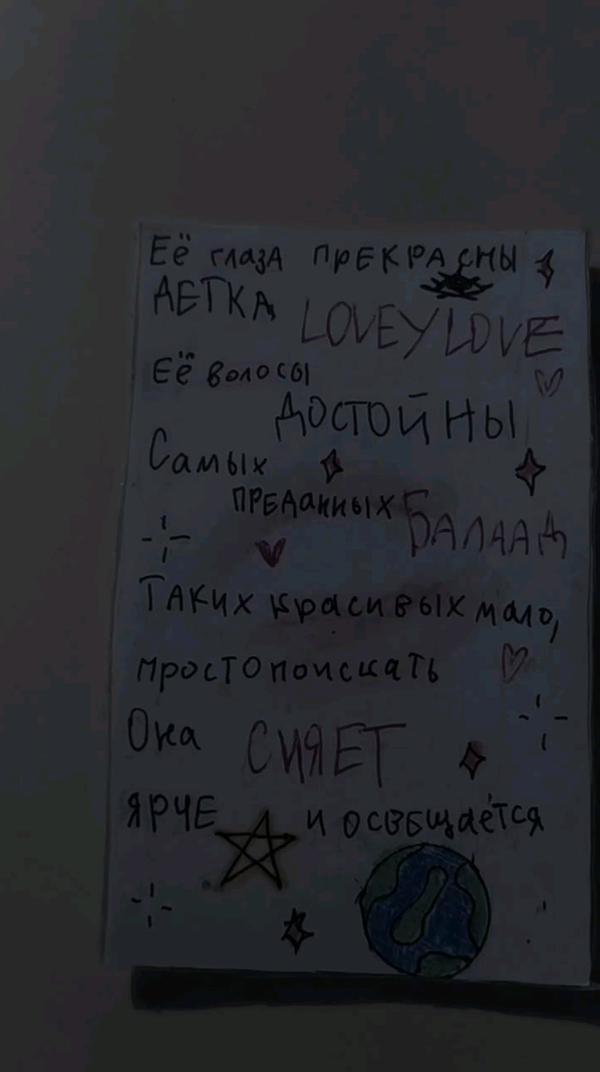 Её глаза ПРЕКРАСНЫ
ДЕТКА LOVEYLOVE
Её волосы
ДОСТОЙНЫ
Самых
ПРЕДанных БАЛААД
Таких красивых мало,
просто поискать
Она СИЯЕТ
ЯРЧЕ и освещаётся